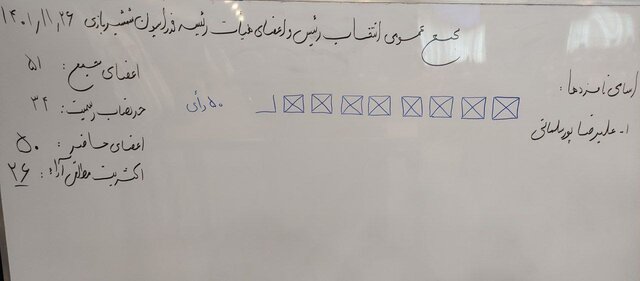 مجمع عمومی انتخاب رئیس و اعضای هیات رئیسه فدراسیون شمشیربازی ۱۴۰۱/۱۱/۲۶
اسامی نامزدها:
۱- علیرضا پورسلمانی
۵۰ رأی
اعضای مجمع: ۵۱
حد نصاب رسمیت: ۳۴
اعضای حاضر: ۵۰
اکثریت مطلق آراء: ۲۶